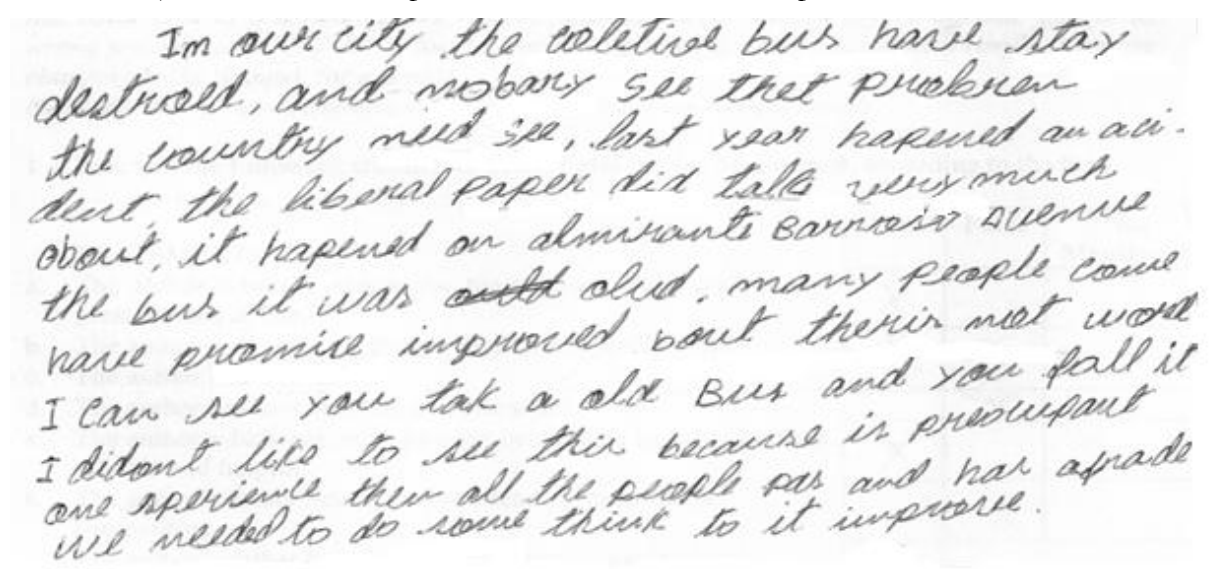 Im our city the coletive bus have stay
destroed, and nobary see thet probren
the country need see, last year hapened an aci-
dent, the liberal paper did talk very much
about, it hapened on almirante Barroso avenue
the bus it was olud, many people come
have promice improved bout theris not word
I can see you tak a old Bus and you fall it
I didont like to see this because is preocupant
one sperience then all the people pas and has afrade
we needed to do some think to it improve.